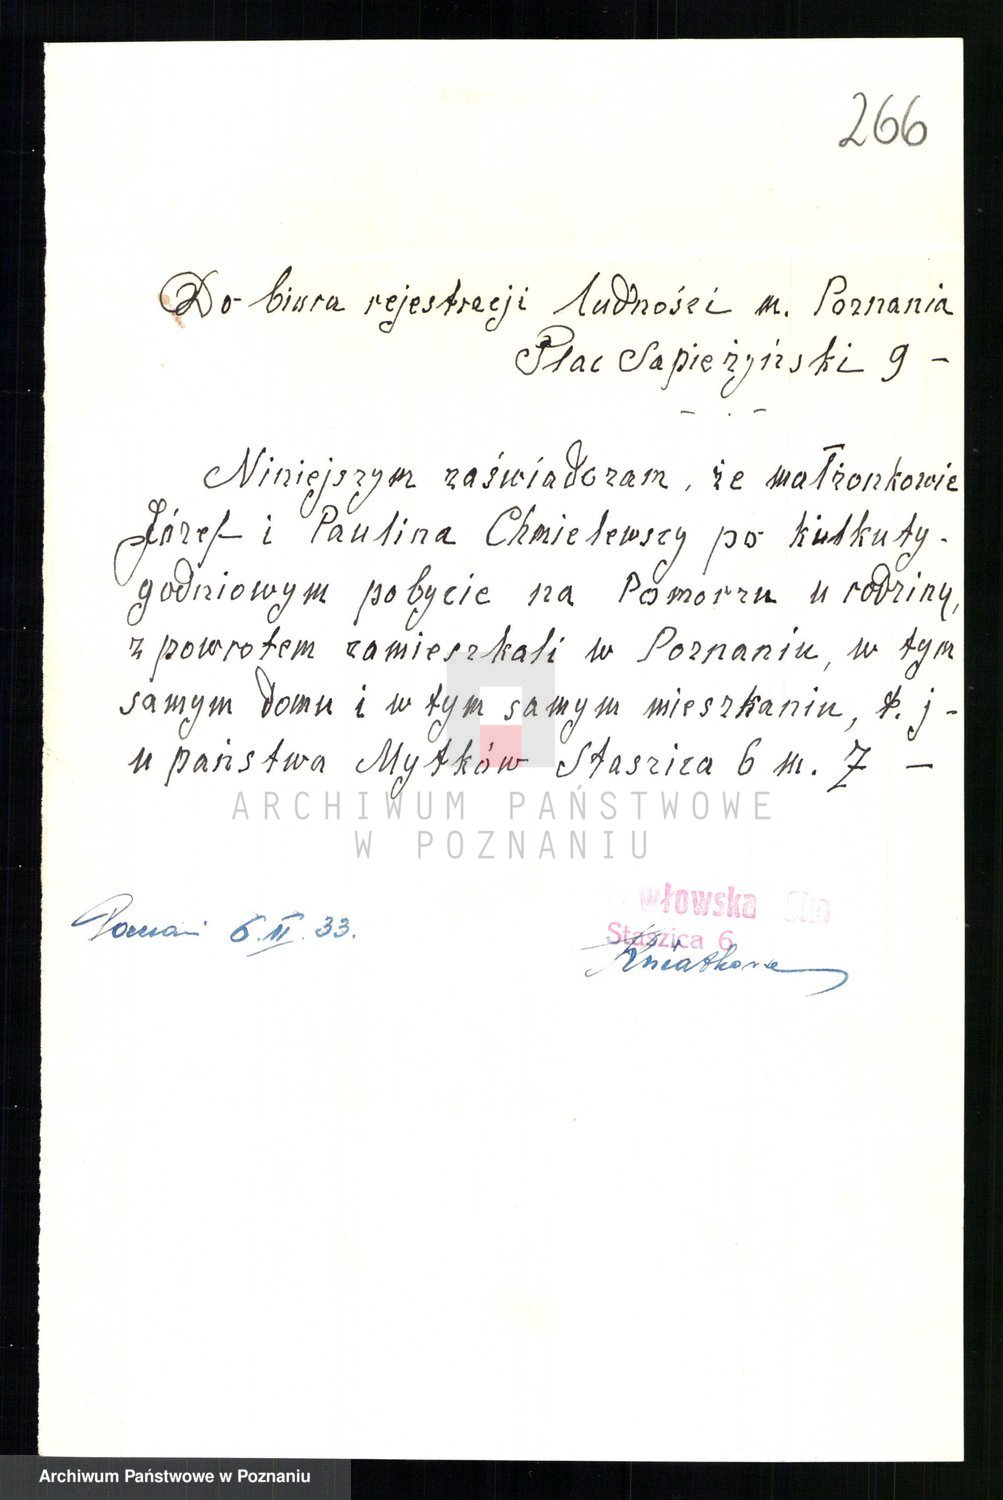 266
Do biura rejestracji ludności m. Poznania
Plac Sapieżyński 9 –
– . –
Niniejszym zaświadczam, że małżonkowie
Józef i Paulina Chmielewscy po kilkuty-
godniowym pobycie na Pomorzu u rodziny,
z powrotem zamieszkali w Poznaniu, w tym
samym domu i w tym samym mieszkaniu, t. j -
u państwa Mytków Staszica 6 m. 7 –
ARCHIWUM PAŃSTWOWE
W POZNANIU
włowska Ska
Poznań 6. II. 33.
Staszica 6
Archiwum Państwowe w Poznaniu